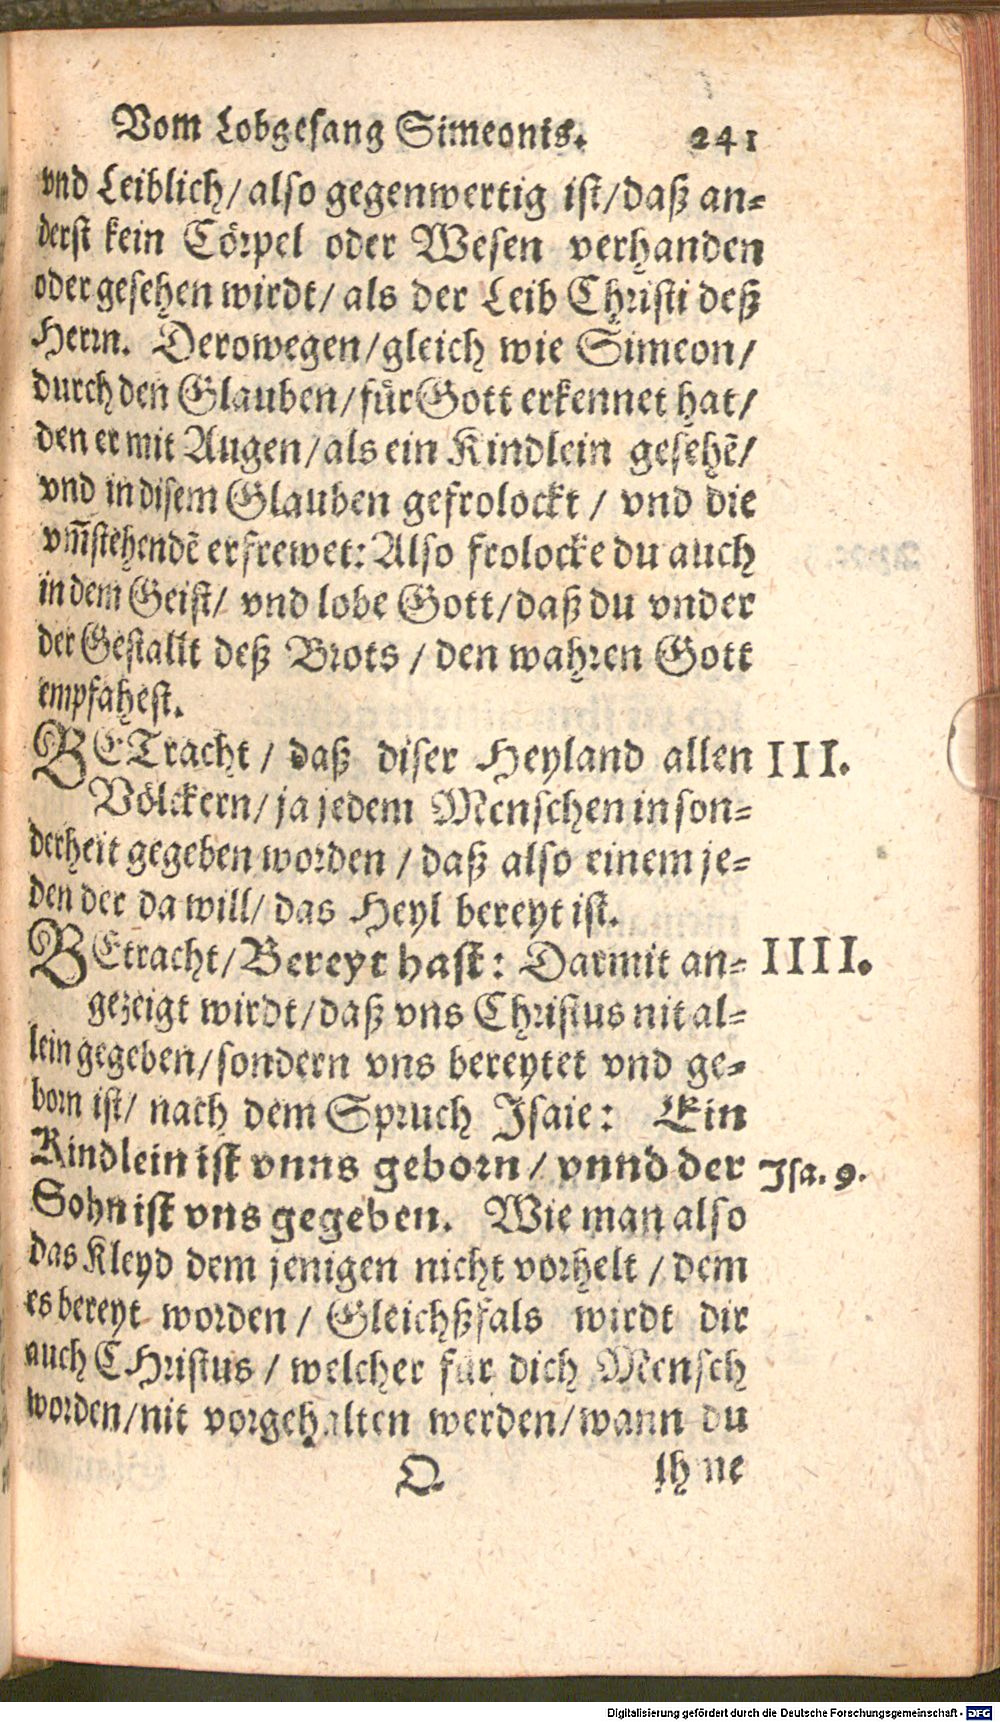 Vom Lobgesang Simeonis. 241
vnd Leiblich/ also gegenwertig ist/ daß an=
derst kein Cörpel oder Wesen verhanden
oder gesehen wirdt/ als der Leib Christi deß
Herrn. Derowegen/ gleich wie Simeon/
durch den Glauben/ für Gott erkennet hat/
den er mit Augen/ als ein Kindlein gesehẽ/
vnd in disem Glauben gefrolockt / vnd die
vm̃stehendẽ erfrewet: Also frolocke du auch
in dem Geist/ vnd lobe Gott/ daß du vnder
der Gestallt deß Brots / den wahren Gott
empfahest.
BETracht / daß diser Heyland allen III.
Völckern/ ja jedem Menschen in son=
derheit gegeben worden / daß also einem je=
den der da will/ das Heyl bereyt ist.
BEtracht/ Bereyt hast: Darmit an= IIII.
gezeigt wirdt/ daß vns Christus nit al=
lein gegeben/ sondern vns bereytet vnd ge=
born ist/ nach dem Spruch Isaie: Ein
Kindlein ist vnns geborn/ vnnd der Isa. 9.
Sohn ist vns gegeben. Wie man also
das Kleyd dem jenigen nicht vorhelt / dem
es bereyt worden/ Gleichßfals wirdt dir
auch CHristus / welcher für dich Mensch
worden/ nit vorgehalten werden/ wann du
Q ihne
Digitalisierung gefördert durch die Deutsche Forschungsgemeinschaft - DFG